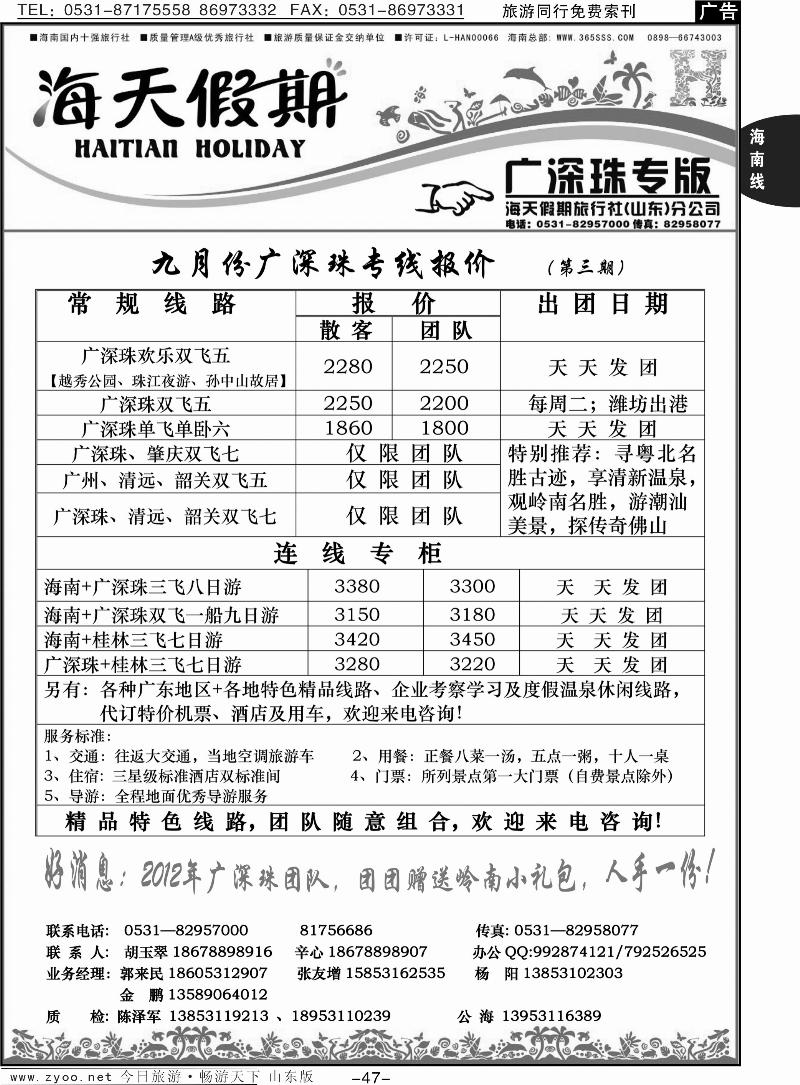 TEL: 0531-87175558 86973332 FAX: 0531-86973331 旅游同行免费索刊 广告
■海南国内十强旅行社 ■质量管理A级优秀旅行社 ■旅游质量保证金交纳单位 ■许可证: L-HAN00066 海南总部: WWW.365SSS.COM 0898—66743003
海天假期
HAITIAN HOLIDAY
H
海南线
广深珠专版
海天假期旅行社(山东)分公司
电话: 0531-82957000 传真: 82958077
九月份广深珠专线报价 (第三期)
常规线路 报价 出团日期
散客 团队
广深珠欢乐双飞五
【越秀公园、珠江夜游、孙中山故居】 2280 2250 天天发团
广深珠双飞五 2250 2200 每周二；潍坊出港
广深珠单飞单卧六 1860 1800 天天发团
广深珠、肇庆双飞七 仅限团队
广州、清远、韶关双飞五 仅限团队
广深珠、清远、韶关双飞七 仅限团队
特别推荐：寻粤北名
胜古迹，享清新温泉，
观岭南名胜，游潮汕
美景，探传奇佛山
连线专柜
海南+广深珠三飞八日游 3380 3300 天天发团
海南+广深珠双飞一船九日游 3150 3180 天天发团
海南+桂林三飞七日游 3420 3450 天天发团
广深珠+桂林三飞七日游 3280 3220 天天发团
另有：各种广东地区+各地特色精品线路、企业考察学习及度假温泉休闲线路，
代订特价机票、酒店及用车，欢迎来电咨询!
服务标准:
1、交通: 往返大交通，当地空调旅游车 2、用餐: 正餐八菜一汤，五点一粥，十人一桌
3、住宿: 三星级标准酒店双标准间 4、门票: 所列景点第一大门票（自费景点除外）
5、导游: 全程地面优秀导游服务
精品特色线路,团队随意组合,欢迎来电咨询!
好消息: 2012年广深珠团队，团团赠送岭南小礼包，人手一份!
联系电话: 0531—82957000 81756686 传真: 0531—82958077
联系人: 胡玉翠 18678898916 辛心 18678898907 办公QQ:992874121/792526525
业务经理: 郭来民 18605312907 张友增 15853162535 杨阳 13853102303
金鹏 13589064012
质检: 陈泽军 13853119213 、18953110239 公海 13953116389
www.zyoo.net 今日旅游·畅游天下 山东版 -47-